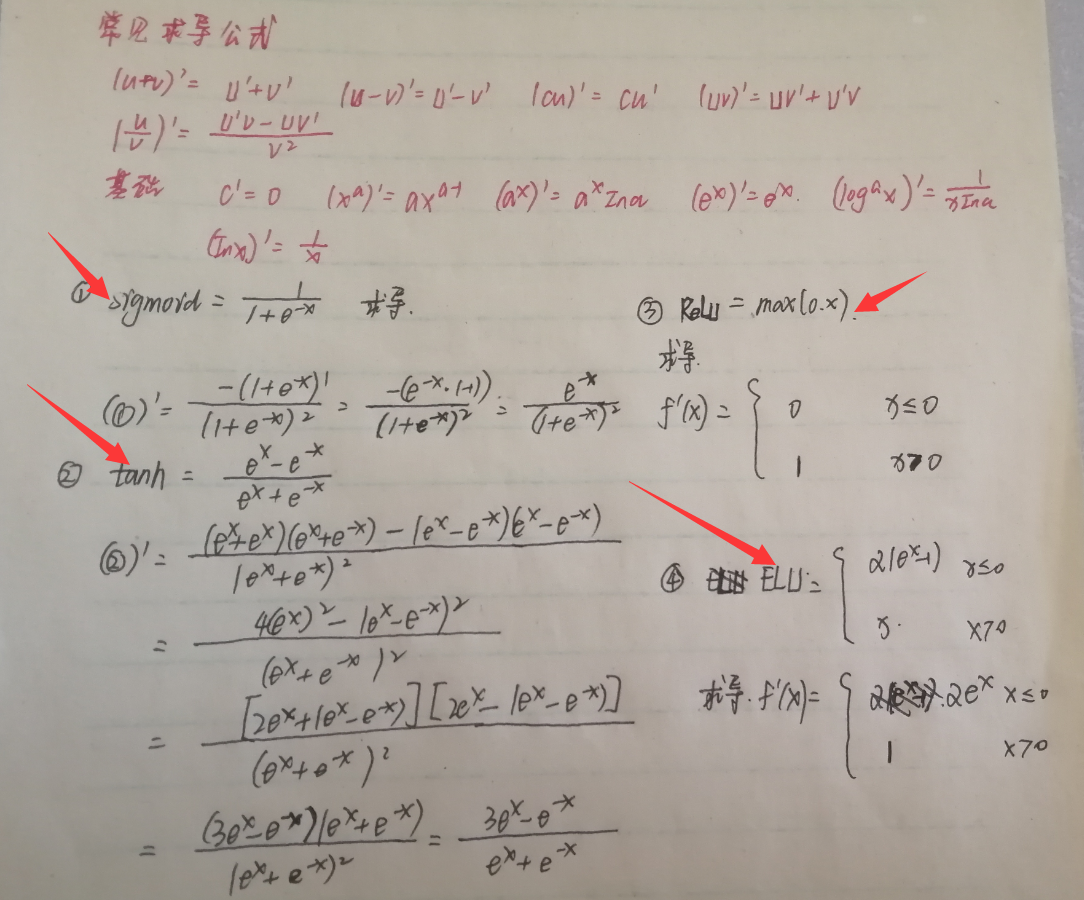 常见求导公式
(u+v)'= u'+v' (u-v)'=u'-v' (cu)'= cu' (uv)'=uv'+u'v
(u/v)'= (u'v-uv')/v²
基础 c'=0 (x^a)'=ax^(a-1) (a^x)'=a^x Ina (e^x)'=e^x. (log^a x)'=1/(xIna)
(Inx)'=1/x
① sigmoid = 1/(1+e^-x) 求导.
(①)'= -(1+e^-x)'/(1+e^-x)² = -(e^-x·(-1))/(1+e^-x)² = e^-x/(1+e^-x)²
② tanh = (e^x-e^-x)/(e^x+e^-x)
(②)'= (e^x+e^x)(e^x+e^-x)-(e^x-e^-x)(e^x-e^-x)/(e^x+e^-x)²
= 4(e^x)²-(e^x-e^-x)²/(e^x+e^-x)²
= [2e^x+(e^x-e^-x)][2e^x-(e^x-e^-x)]/(e^x+e^-x)²
= (3e^x-e^-x)(e^x+e^-x)/(e^x+e^-x)² = (3e^x-e^-x)/(e^x+e^-x)
③ ReLU = max(0.x).
求导.
f'(x) = { 0 x≤0
1 x>0
④ ELU = { 2(e^x-1) x≤0
x. x>0
求导. f'(x)= { 2e^x x≤0
1 x>0